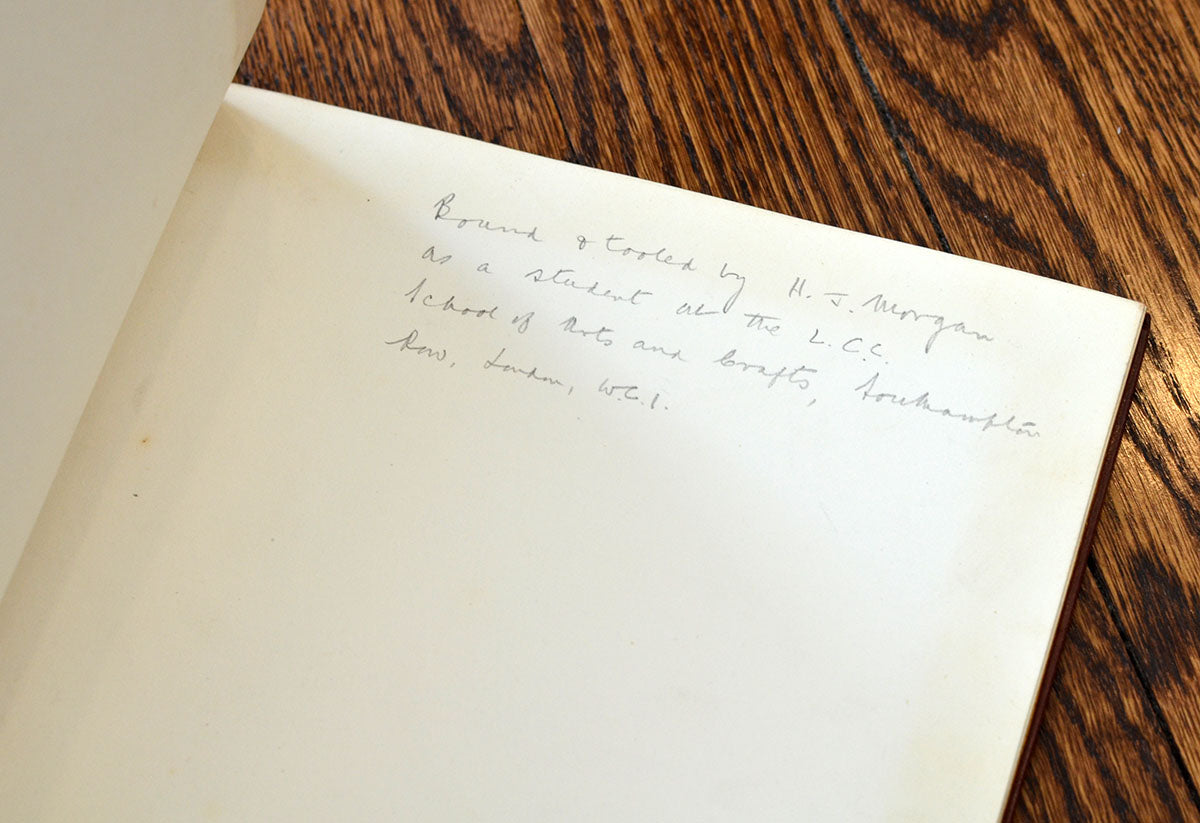 Bound & tooled by H. J. Morgan
as a student at the L.C.C.
School of Arts and Crafts, Southampton
Row, London, W.C.1.